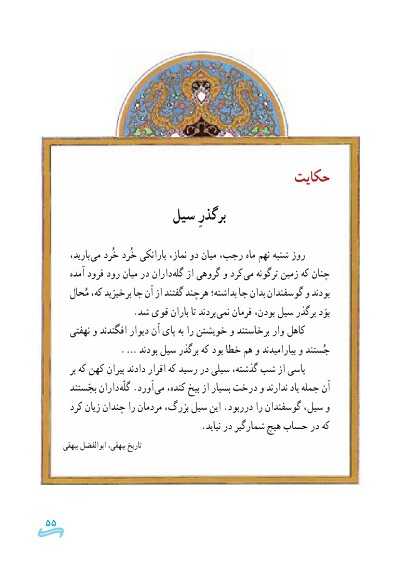 حکایت
برگذرِ سیل
روز شنبه نهم ماه رجب، میان دو نماز، بارانکی خُرد خُرد می‌بارید،
چنان که زمین ترگونه می‌کرد و گروهی از گله‌داران در میان رود فرود آمده
بودند و گوسفندان بدان جا بداشته؛ هرچند گفتند از آن جا برخیزید که، مُحال
بوَد برگذر سیل بودن، فرمان نمی‌بردند تا باران قوی شد.
کاهل وار برخاستند و خویشتن را به پای آن دیوار افگندند و نهفتی
جُستند و بیارامیدند و هم خطا بود که برگذر سیل بودند … .
پاسی از شب گذشته، سیلی در رسید که اقرار دادند پیران کهن که بر
آن جمله یاد ندارند و درخت بسیار از بیخ کنده، می‌آورد. گلّه‌داران بجَستند
و سیل، گوسفندان را درربود. این سیل بزرگ، مردمان را چندان زیان کرد
که در حساب هیچ شمارگیر در نیاید.
تاریخ بیهقی، ابوالفضل بیهقی
۵۵